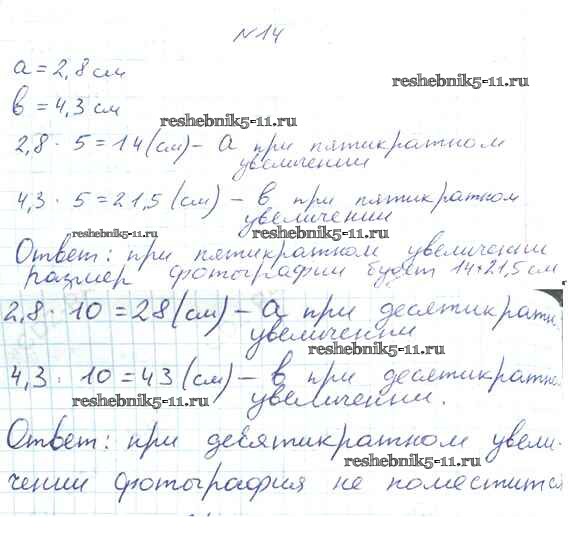 №14
a = 2,8 см
reshebnik5-11.ru
в = 4,3 см
reshebnik5-11.ru
2,8 · 5 = 14 (см) – a при пятикратном
увеличении
4,3 · 5 = 21,5 (см) – в при пятикратном
увеличении
reshebnik5-11.ru
reshebnik5-11.ru
Ответ: при пятикратном увеличении
размер фотографии будет 14·21,5 см
2,8 · 10 = 28 (см) – a при десятикратн
увеличении
reshebnik5-11.ru
4,3 · 10 = 43 (см) – в при десятикратно
увеличении.
reshebnik5-11.ru
Ответ: при десятикратном увели-
reshebnik5-11.ru
чении фотография не поместится